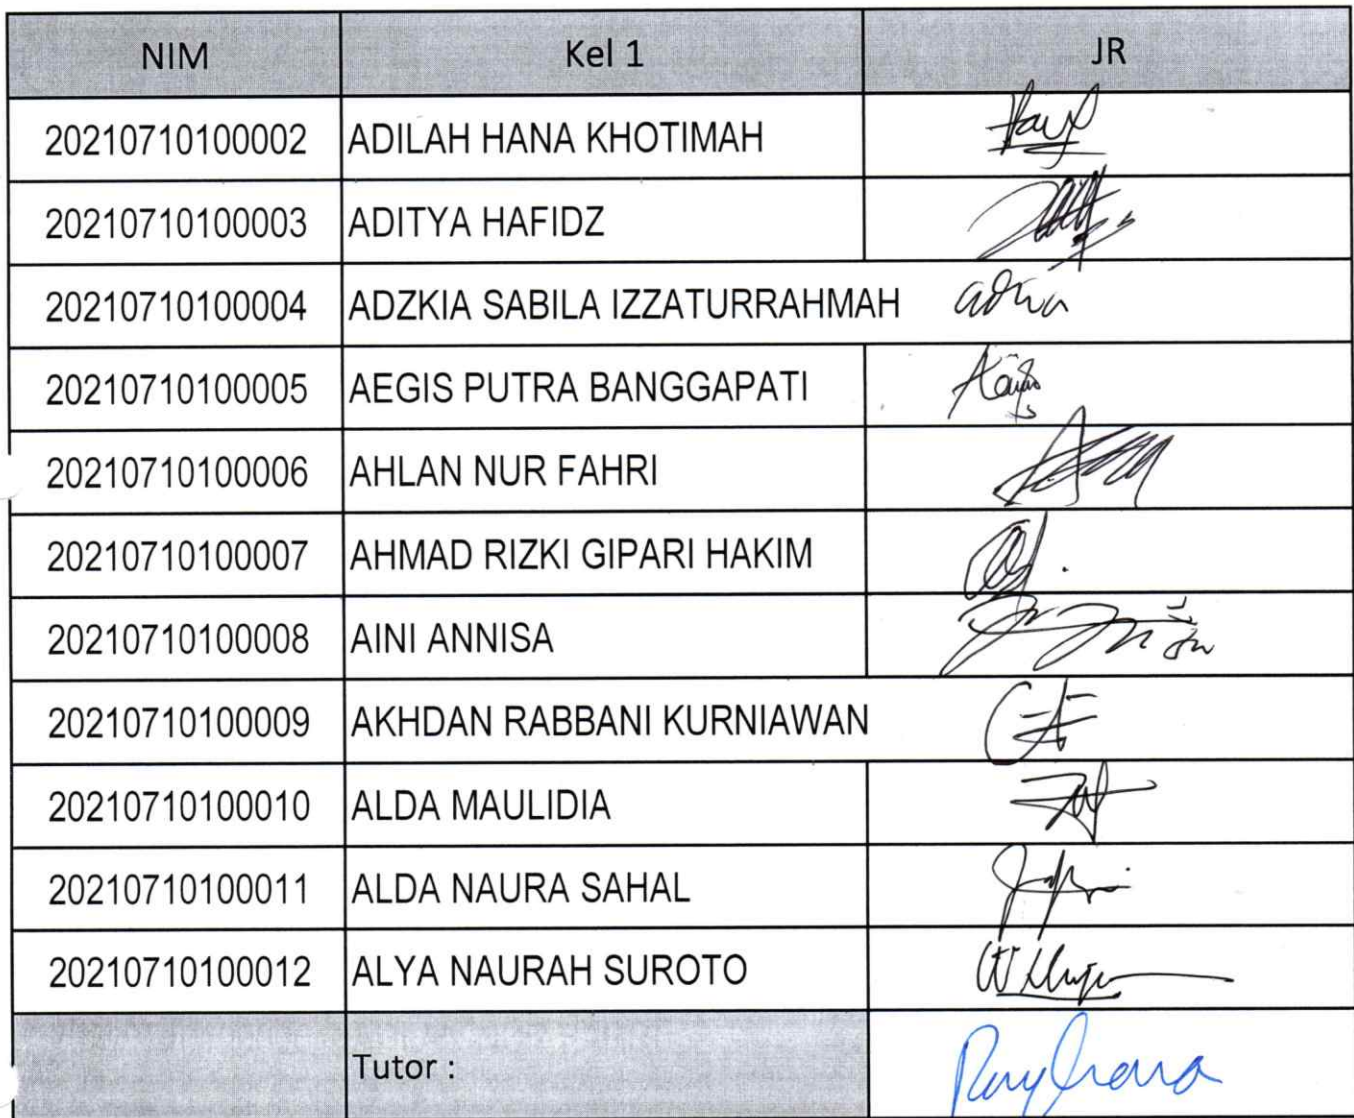 NIM Kel 1 JR
20210710100002 ADILAH HANA KHOTIMAH
20210710100003 ADITYA HAFIDZ
20210710100004 ADZKIA SABILA IZZATURRAHMAH
20210710100005 AEGIS PUTRA BANGGAPATI
20210710100006 AHLAN NUR FAHRI
20210710100007 AHMAD RIZKI GIPARI HAKIM
20210710100008 AINI ANNISA
20210710100009 AKHDAN RABBANI KURNIAWAN
20210710100010 ALDA MAULIDIA
20210710100011 ALDA NAURA SAHAL
20210710100012 ALYA NAURAH SUROTO
Tutor :